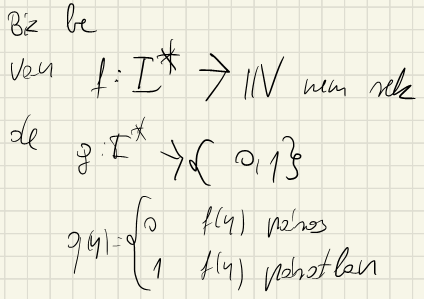 Biz be
van f: I* → ℕ nem rek
de g: I* → { 0, 1 }
g(y) = { 0 f(y) páros
1 f(y) páratlan